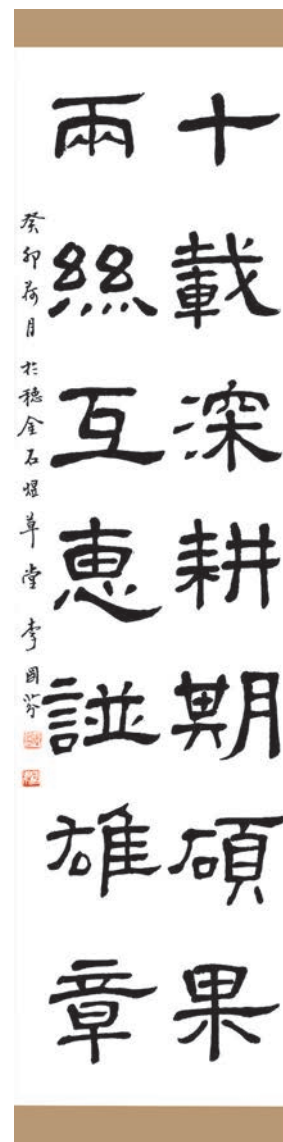 十載深耕期碩果
兩絲互惠譜雄章
癸卯荷月於穗金石煜草堂李國芬